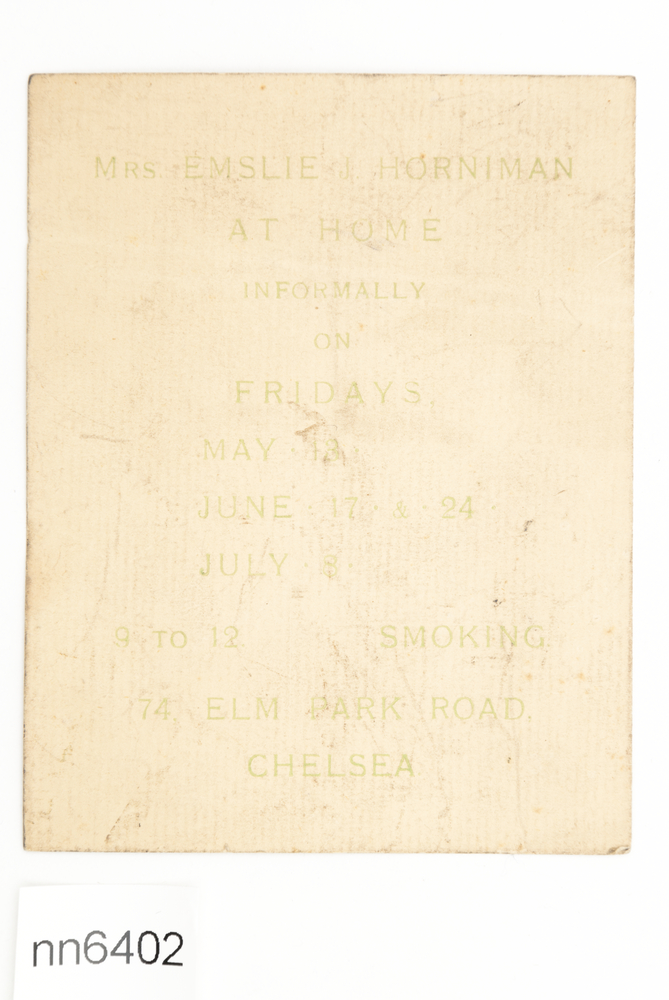 Mrs. EMSLIE J. HORNIMAN
AT HOME
INFORMALLY
ON
FRIDAYS,
MAY 13
JUNE 17 & 24
JULY 8
9 TO 12. SMOKING.
74, ELM PARK ROAD,
CHELSEA
nn6402